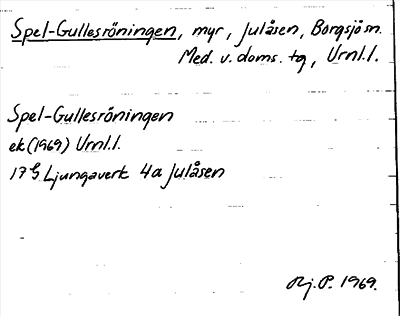 Spel-Gullesröningen, myr, Julåsen, Borgsjö sn.
Med. v. doms. tg, Urnl.l.
Spel-Gullesröningen
ek (1969) Urnl.l.
17 G Ljungaverk 4a Julåsen
Rj. P. 1969.